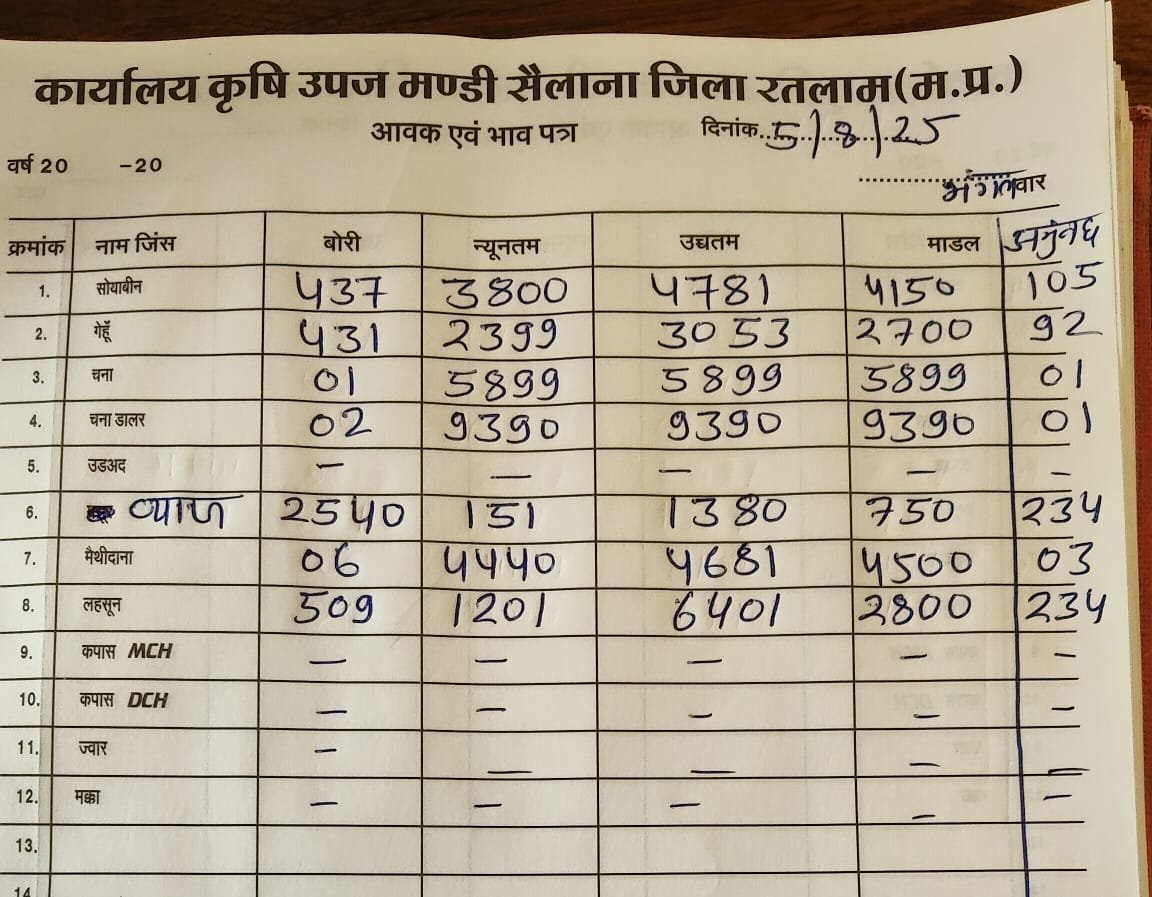 कार्यालय कृषि उपज मण्डी सैलाना जिला रतलाम(म.प्र.)
आवक एवं भाव पत्र दिनांक..5/8/25
वर्ष 20 -20
मंगलवार
क्रमांक नाम जिंस बोरी न्यूनतम उच्चतम माडल अनुबंध
1. सोयाबीन 437 3800 4781 4150 105
2. गेहूँ 431 2399 3053 2700 92
3. चना 01 5899 5899 5899 01
4. चना डालर 02 9390 9390 9390 01
5. उडअद – – – – –
6. प्याज 2540 151 1380 750 234
7. मैथीदाना 06 4440 4681 4500 03
8. लहसून 509 1201 6401 2800 234
9. कपास MCH – – – – –
10. कपास DCH – – – – –
11. ज्वार – – – – –
12. मक्का – – – – –
13.
14